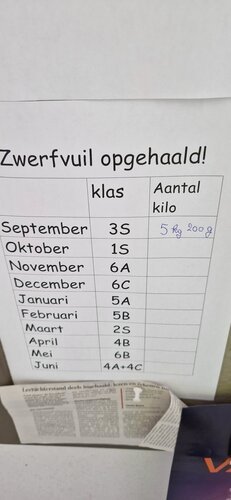 Zwerfvuil opgehaald!
klas Aantal kilo
September 3S 5 kg 200 g
Oktober 1S
November 6A
December 6C
Januari 5A
Februari 5B
Maart 2S
April 4B
Mei 6B
Juni 4A+4C